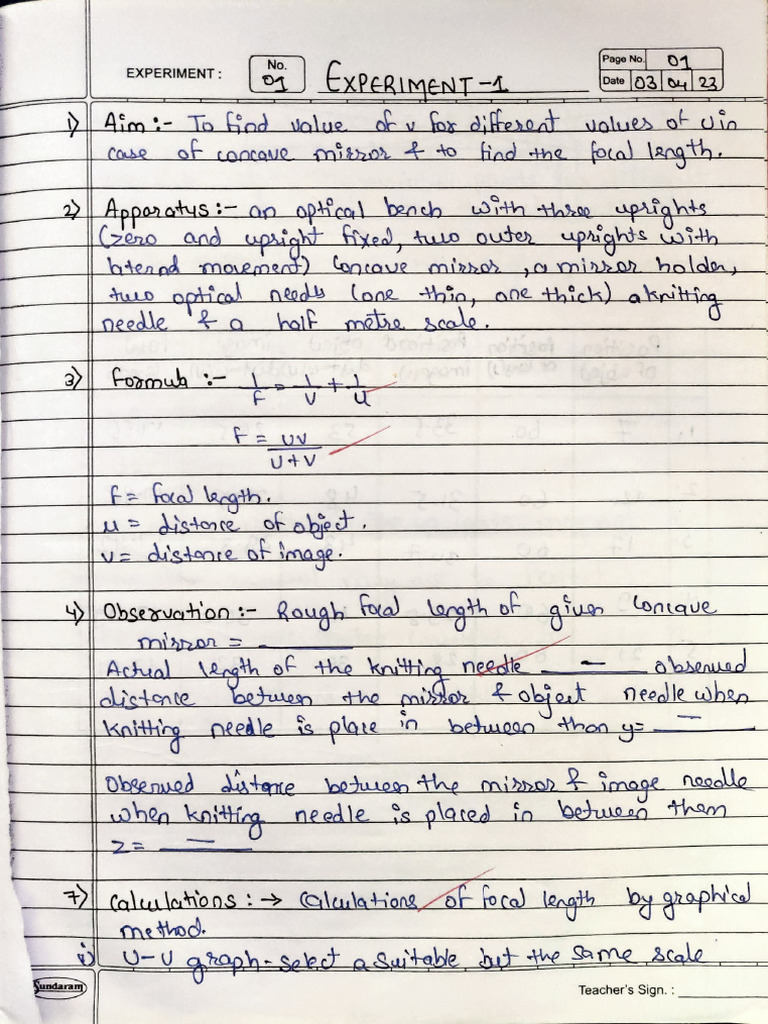 EXPERIMENT : No. 01 EXPERIMENT-1 Page No. 01
Date 03 04 23
1) Aim :- To find value of v for different values of U in
case of concave mirror & to find the focal length.
2) Apparatus :- an optical bench with three uprights
(zero and upright fixed, two outer uprights with
laternd movement) concave mirror, a mirror holder,
two optical needls (one thin, one thick) a knitting
needle & a half metre scale.
3) Formula :- 1/F = 1/V + 1/U
F = UV/U+V
F = focal length.
u = distance of object.
v = distance of image.
4) Observation :- Rough focal length of given concave
mirror = ________
Actual length of the knitting needle ___-___ observed
distance between the mirror & object needle when
knitting needle is place in between than y= ___-___
Observed distance between the mirror & image needle
when knitting needle is placed in between them
z = ___-___
7) Calculations : → Calculations of focal length by graphical
method.
i) U-V graph - select a suitable but the same scale
Sundaram Teacher's Sign. : ________